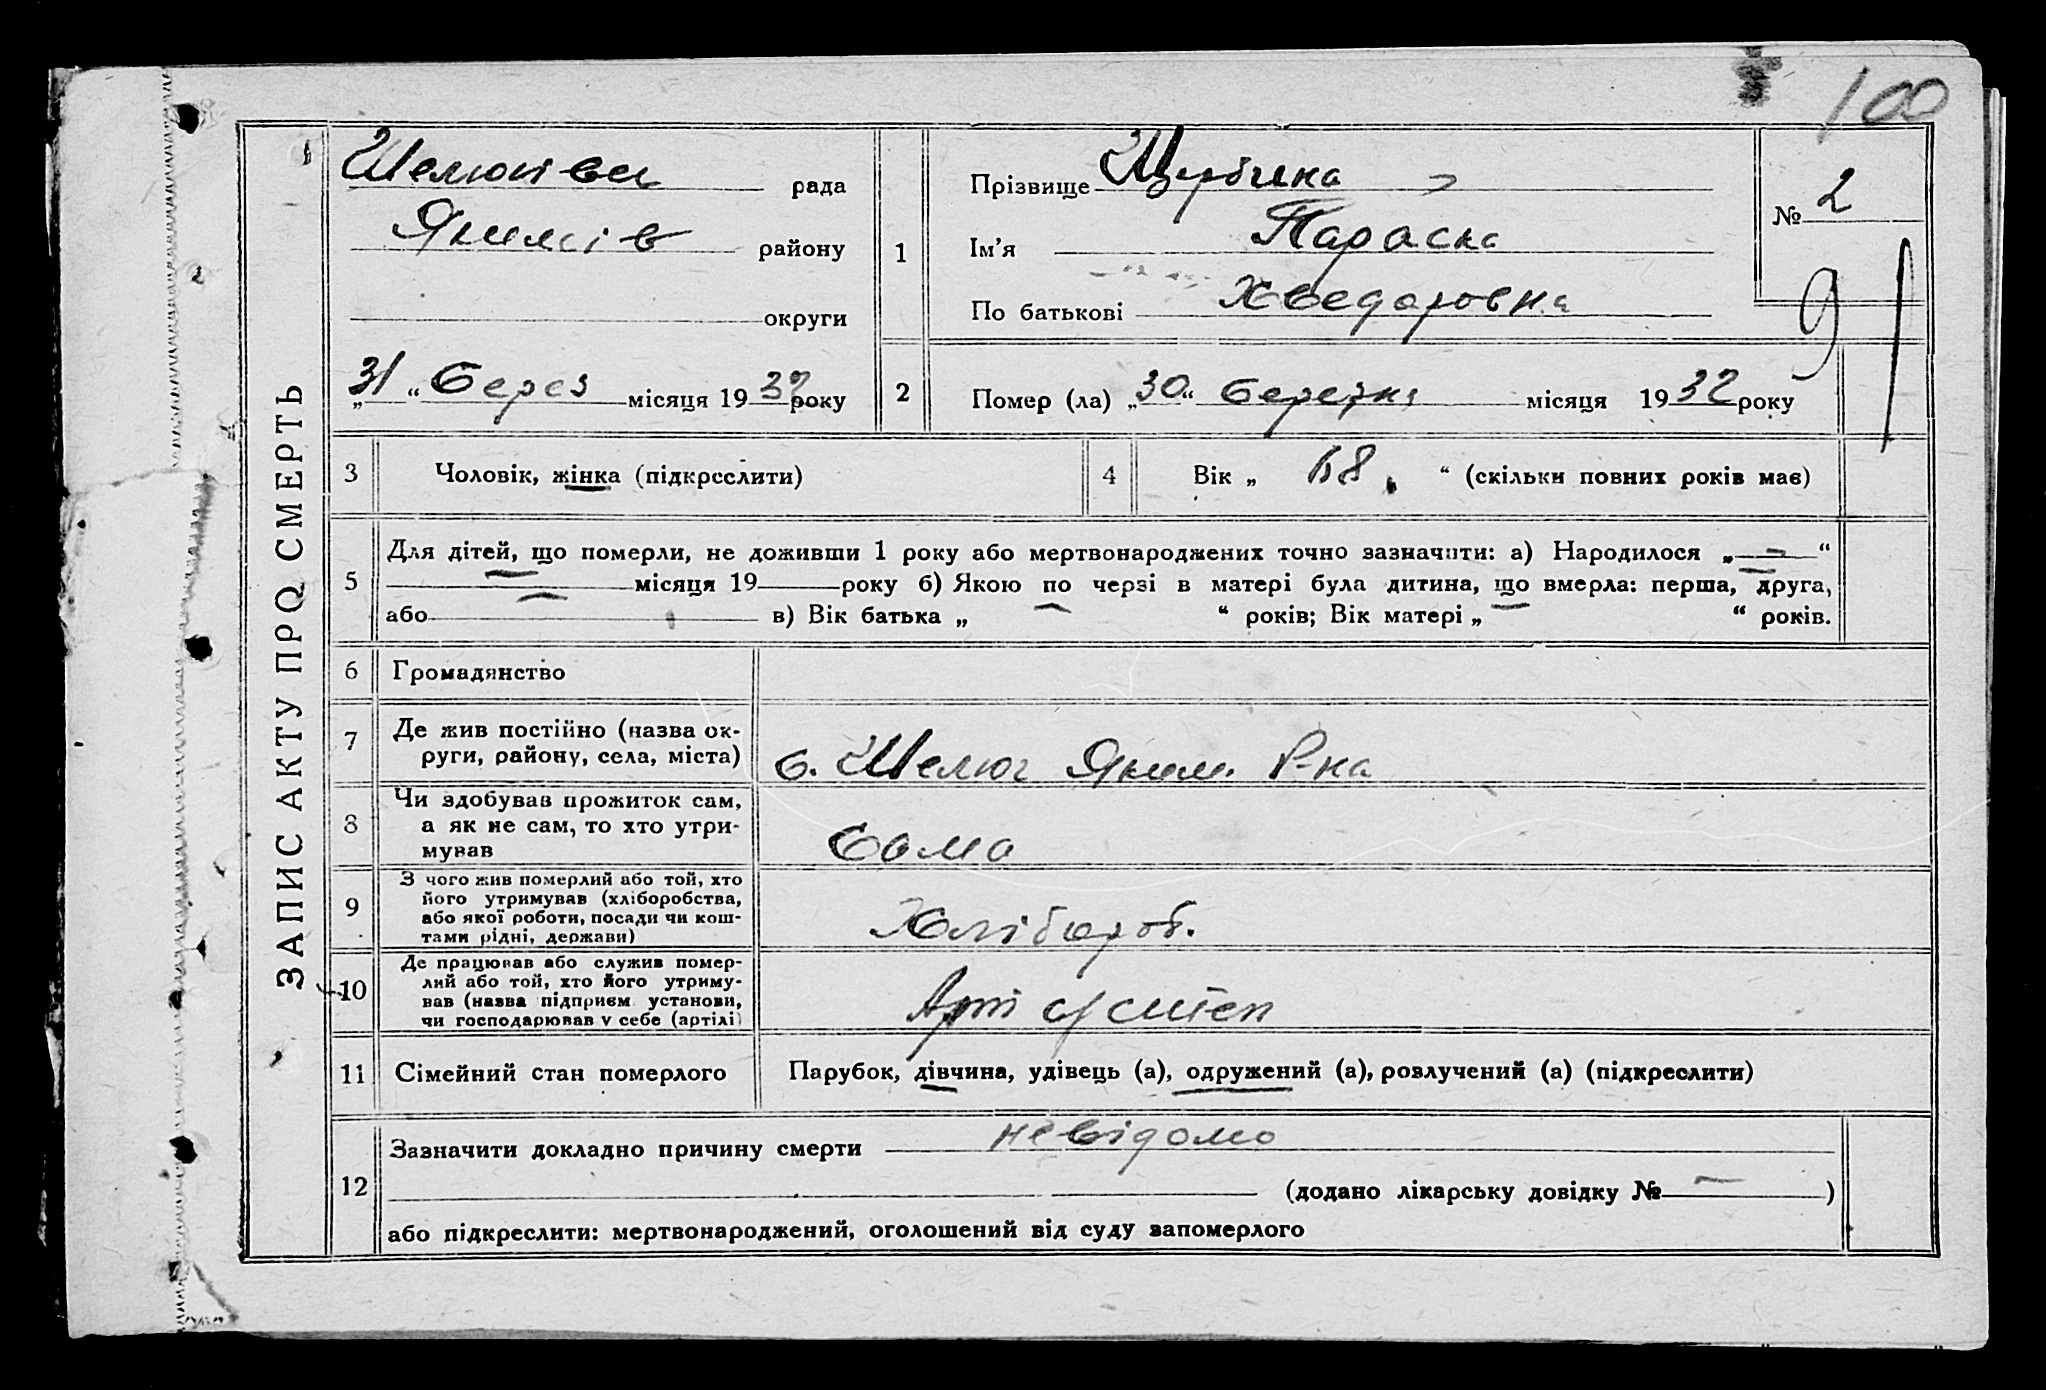 100
ЗАПИС АКТУ ПРО СМЕРТЬ
рада
Якимів району
округи
„31“ Берез місяця 1932 року
1
Прізвище Щербина
Ім’я Параска
По батькові Хведоровна
№ 2
91
2
Помер (ла) „30“ березня місяця 1932 року
3
Чоловік, жінка (підкреслити)
4
Вік „ 68. “ (скільки повних років має)
5
Для дітей, що померли, не доживши 1 року або мертвонароджених точно зазначити: а) Народилося „—“
місяця 19 року б) Якою по черзі в матері була дитина, що вмерла: перша, друга,
або в) Вік батька „ — “ років; Вік матері „ — “ років.
6
Громадянство
7
Де жив постійно (назва ок-
руги, району, села, міста)
с. Шелюг Яким. Р-на
8
Чи здобував прожиток сам,
а як не сам, то хто утри-
мував
Сама
9
З чого жив померлий або той, хто
його утримував (хліборобства,
або якої роботи, посади чи кош-
тами рідні, держави)
Хлібороб.
10
Де працював або служив помер-
лий або той, хто його утриму-
вав (назва підприєм установи,
чи господарював у себе (артілі)
степ
11
Сімейний стан померлого
Парубок, дівчина, удівець (а), одружений (а), розлучений (а) (підкреслити)
12
Зазначити докладно причину смерти невідомо
(додано лікарську довідку № — )
або підкреслити: мертвонароджений, оголошений від суду запомерлого